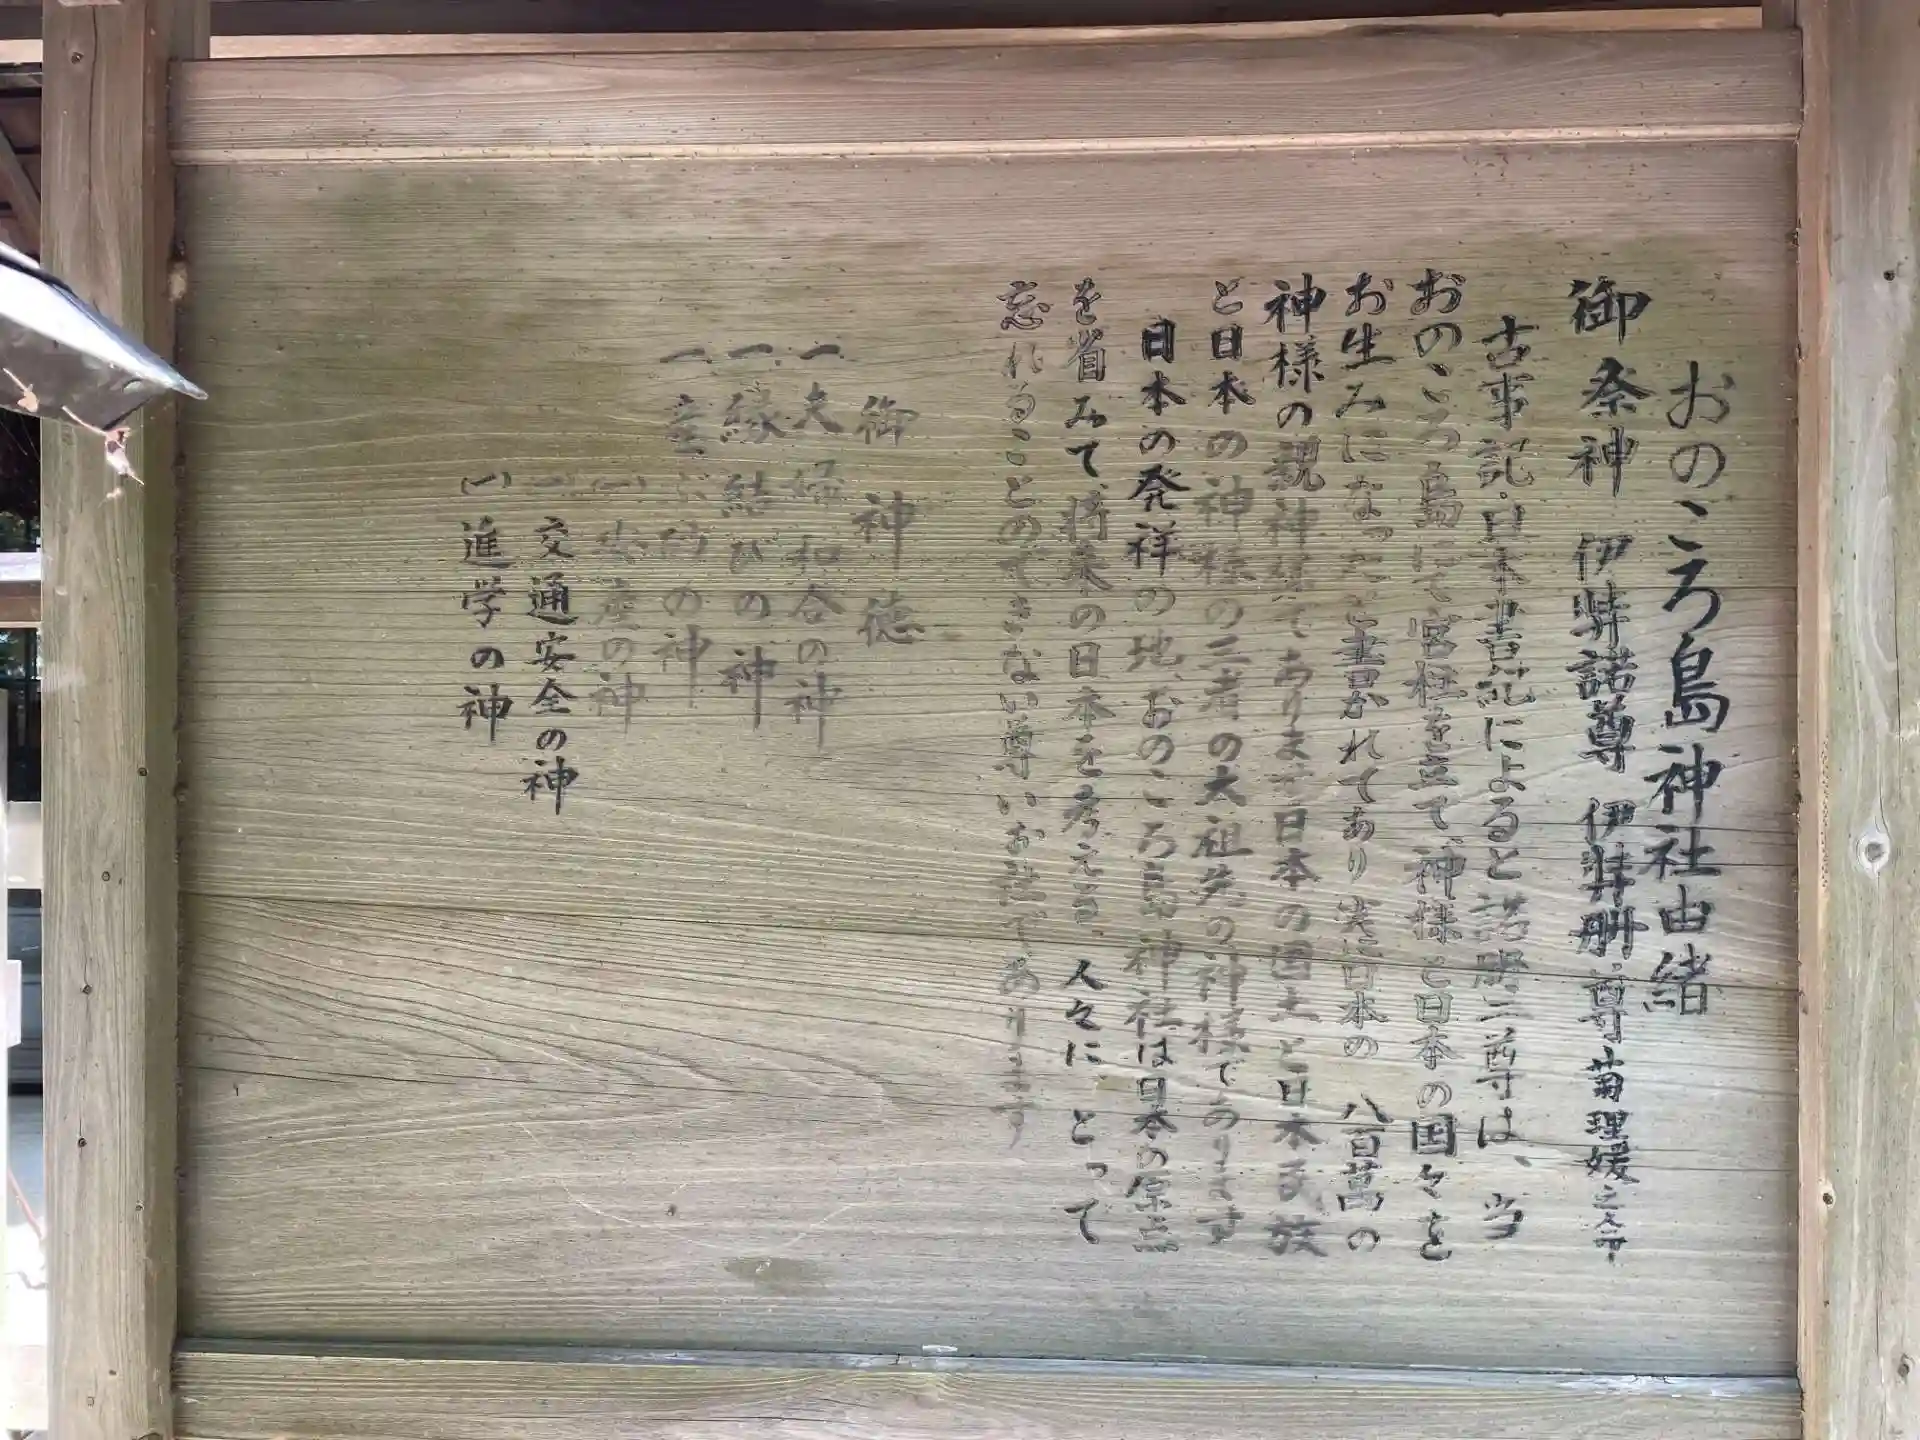 おのころ島神社由緒
御祭神 伊弉諾尊 伊弉冊尊 菊理媛之命
古事記・日本書記によると諾冊二尊は、当
おのころ島にて宮柱を立て、神様と日本の国々を
お生みになったと書かれてあり実に日本の 八百萬の
神様の親神様であります日本の国土と日本民族
と日本の神様の三者の大祖先の神様であります
日本の発祥の地、おのころ島神社は日本の原点
を省みて、将来の日本を考える、人々に とって
忘れることのできない尊いお社であります
御神徳
一、夫婦和合の神
一、縁結びの神
一、産ぶ砂の神
(一)安産の神
一、交通安全の神
(一)進学の神